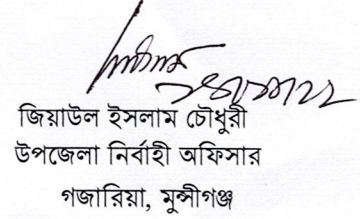 জিয়াউল ইসলাম চৌধুরী
উপজেলা নির্বাহী অফিসার
গজারিয়া, মুন্সীগঞ্জ